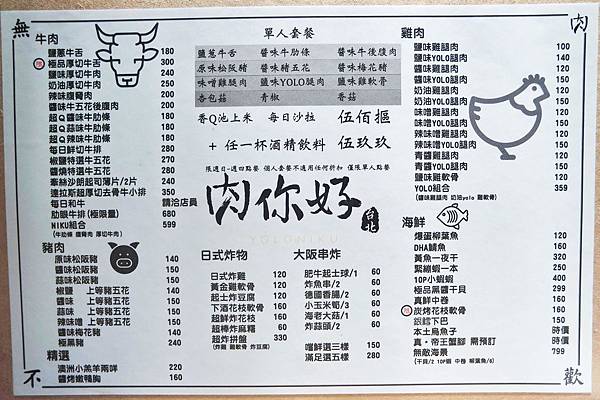 無
肉
不
歡
牛肉
鹽蔥牛舌 180
極品厚切牛舌 300
鹽味厚切牛肉 240
奶油厚切牛肉 240
辣味腹脅肉 200
醬味牛五花後腹肉 200
超Q鹽味牛肋條 200
超Q蒜味牛肋條 200
超Q辣味牛肋條 200
每日鮮切牛排
椒鹽特選牛五花
醬燒特選牛五花
牽絲沙朗起司薄片/2片 240
達拉斯超厚切去骨牛小排 350
每日和牛 請洽店員
肋眼牛排(極限量) 680
NIKU組合 599
(牛肋條 腹脅肉 厚切牛肉)
豬肉
原味松阪豬 140
鹽味松阪豬 140
蒜味松阪豬
椒鹽 上等豬五花
醬味 上等豬五花
蒜味 上等豬五花
辣味噌 上等豬五花
醬味梅花豬 140
極黑豬 240
精選
澳洲小羔羊兩咩 220
醬烤嫩鴨胸 160
單人套餐
鹽蔥牛舌 醬味牛肋條 醬味牛後腹肉
原味松阪豬 醬味豬五花 醬味梅花豬
味噌雞腿肉 鹽味YOLO腿肉 鹽味雞軟骨
杏包菇 青椒 香菇
香Q池上米 每日沙拉 伍佰摳
+ 任一杯酒精飲料 伍玖玖
限週日-週四點餐 個人套餐不適用任何折扣 僅限單人點餐
肉你好
台北
YOLONIKU
日式炸物
日式炸雞 110
黃金雞軟骨 110
起士炸豆腐 110
下酒花枝軟骨 110
超鮮炸花枝 110
超棒炸麻糬 60
超炸拼盤 330
(炸雞 雞軟骨 炸豆腐)
大阪串炸
肥牛起士球/1 60
炸魚串/2 60
德國香腸/2 60
小玉米筍/3 60
海老大菇/1 60
炸蒜頭/2 60
嚐鮮選三樣 150
滿足選五樣 280
雞肉
鹽味雞腿肉 100
鹽味YOLO腿肉 140
醬味雞腿肉 120
醬味YOLO腿肉 150
奶油雞腿肉 120
奶油YOLO腿肉 150
味噌雞腿肉 120
味噌YOLO腿肉 150
辣味噌雞腿肉 120
辣味噌YOLO腿肉 150
青醬雞腿肉 120
青醬YOLO腿肉 150
鹽味雞軟骨 110
YOLO組合 359
(醬味雞腿肉 奶油yolo 雞軟骨)
海鮮
爆蛋柳葉魚 120
DHA鯖魚 160
黃魚一夜干 320
緊繃蝦一本
10P小蝦蝦 400
極品黑醬干貝 299
真鮮中卷 160
炭烤花枝軟骨 150
銀鱈下巴 150
本土烏魚子 時價
真・帝王蟹腳 需預訂 時價
無敵海景 799
(干貝/2 10P蝦 中卷 柳葉魚/6)